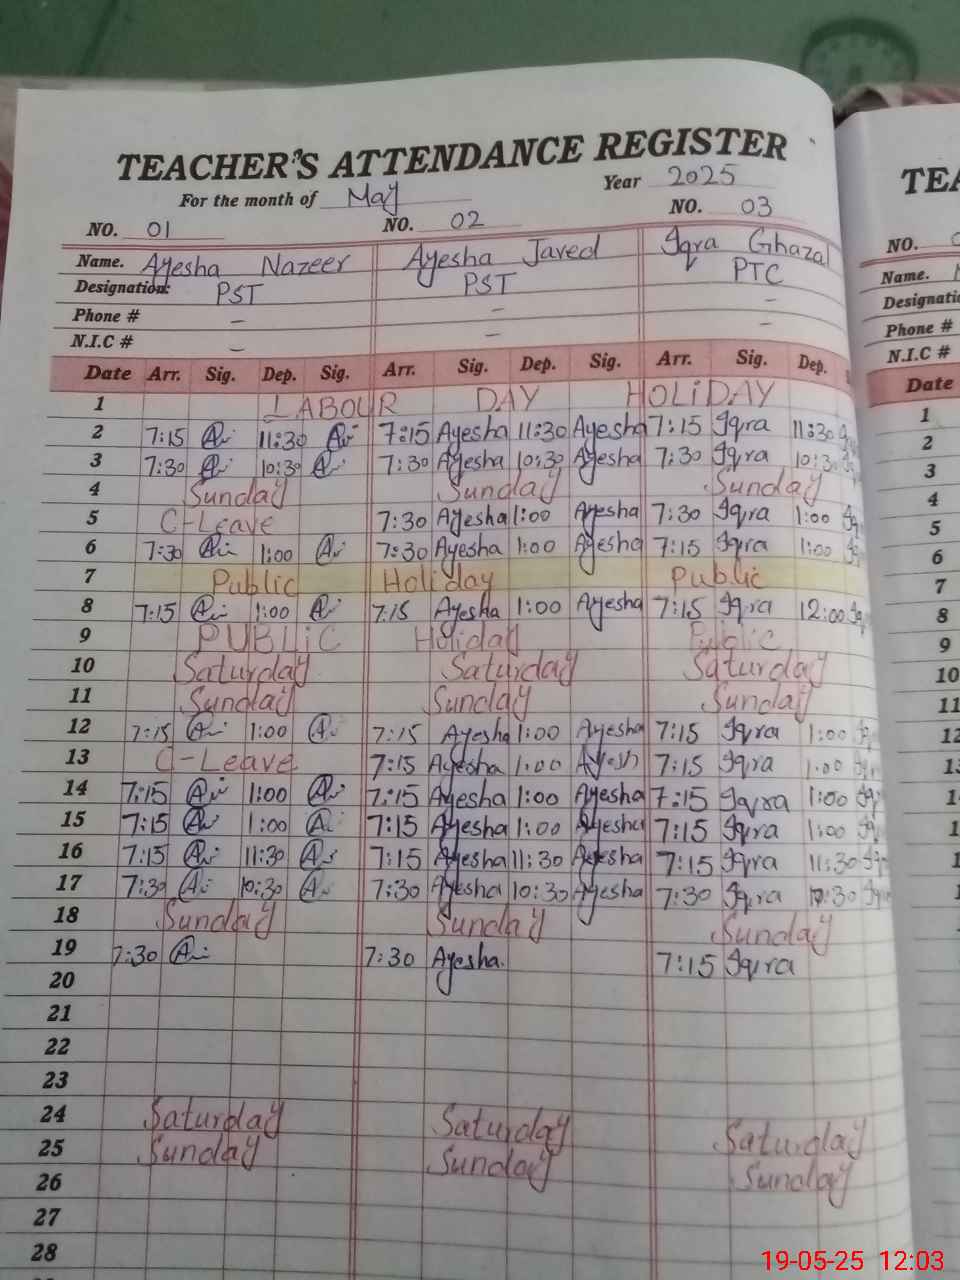 TEACHER'S ATTENDANCE REGISTER
For the month of May Year 2025
NO. 01 NO. 02 NO. 03
Name. Ayesha Nazeer Ayesha Javed Iqra Ghazal
Designation: PST PST PTC
Phone # – – –
N.I.C # – – –
Date Arr. Sig. Dep. Sig. Arr. Sig. Dep. Sig. Arr. Sig. Dep.
1 LABOUR DAY HOLiDAY
2 7:15 11:30 7:15 Ayesha 11:30 Ayesha 7:15 Iqra 11:30
3 7:30 10:30 7:30 Ayesha 10:30 Ayesha 7:30 Iqra 10:30
4 Sunday Sunday Sunday
5 C-Leave 7:30 Ayesha 1:00 Ayesha 7:30 Iqra 1:00
6 7:30 1:00 7:30 Ayesha 1:00 Ayesha 7:15 Iqra 1:00
7 Public Holiday Public
8 7:15 1:00 7:15 Ayesha 1:00 Ayesha 7:15 Iqra 12:00
9 PUBLiC Holiday Public
10 Saturday Saturday Saturday
11 Sunday Sunday Sunday
12 7:15 1:00 7:15 Ayesha 1:00 Ayesha 7:15 Iqra 1:00
13 C-Leave 7:15 Ayesha 1:00 Ayesh 7:15 Iqra 1:00
14 7:15 1:00 7:15 Ayesha 1:00 Ayesha 7:15 Iqra 1:00
15 7:15 1:00 7:15 Ayesha 1:00 Ayesha 7:15 Iqra 1:00
16 7:15 11:30 7:15 Ayesha 11:30 Ayesha 7:15 Iqra 11:30
17 7:30 10:30 7:30 Ayesha 10:30 Ayesha 7:30 Iqra 10:30
18 Sunday Sunday Sunday
19 7:30 7:30 Ayesha. 7:15 Iqra
20
21
22
23
24 Saturday Saturday Saturday
25 Sunday Sunday Sunday
26
27
28
NO.
Name.
Phone #
N.I.C #
Date
1
2
3
4
5
6
7
8
9
10
11
12
19-05-25 12:03